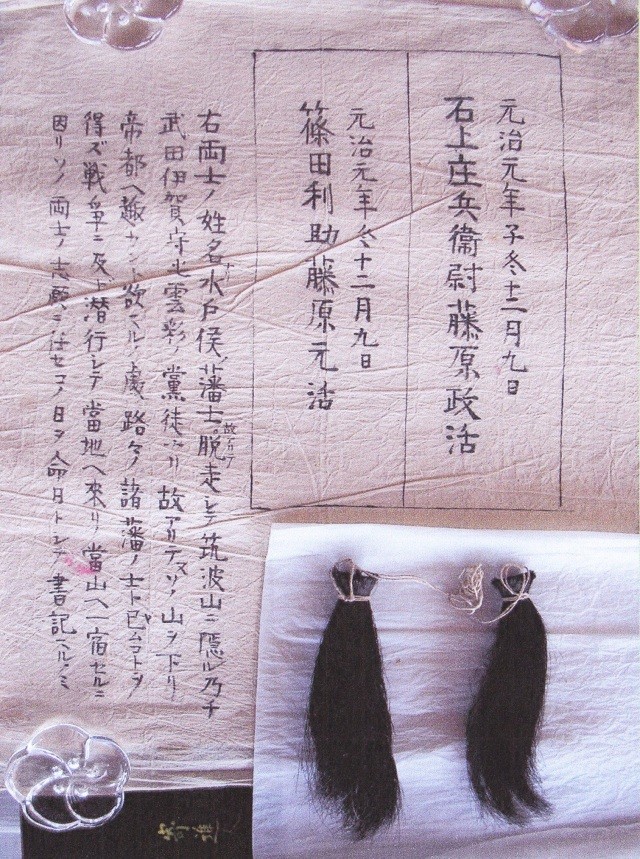 元治元年子冬十二月九日
石上庄兵衞尉藤原政活
元治元年冬十二月九日
篠田利助藤原元活
右両士ノ姓名水戸侯ノ藩士。脱走シテ筑波山ニ隠ル乃チ
故有リテ
武田伊賀守 雲彩ノ黨徒ナリ故アリテソノ山ヲ下リ
帝都ヘ趣カント欲スルノ處路々ノ諸藩ノ士ト已ムコトヲ
得ズ戦争ニ及ビ潜行シテ當地ヘ來リ當山ヘ一宿セルニ
因リソノ両士ノ志願ニ任セコノ日ヲ命日トシテ書記 ルノミ